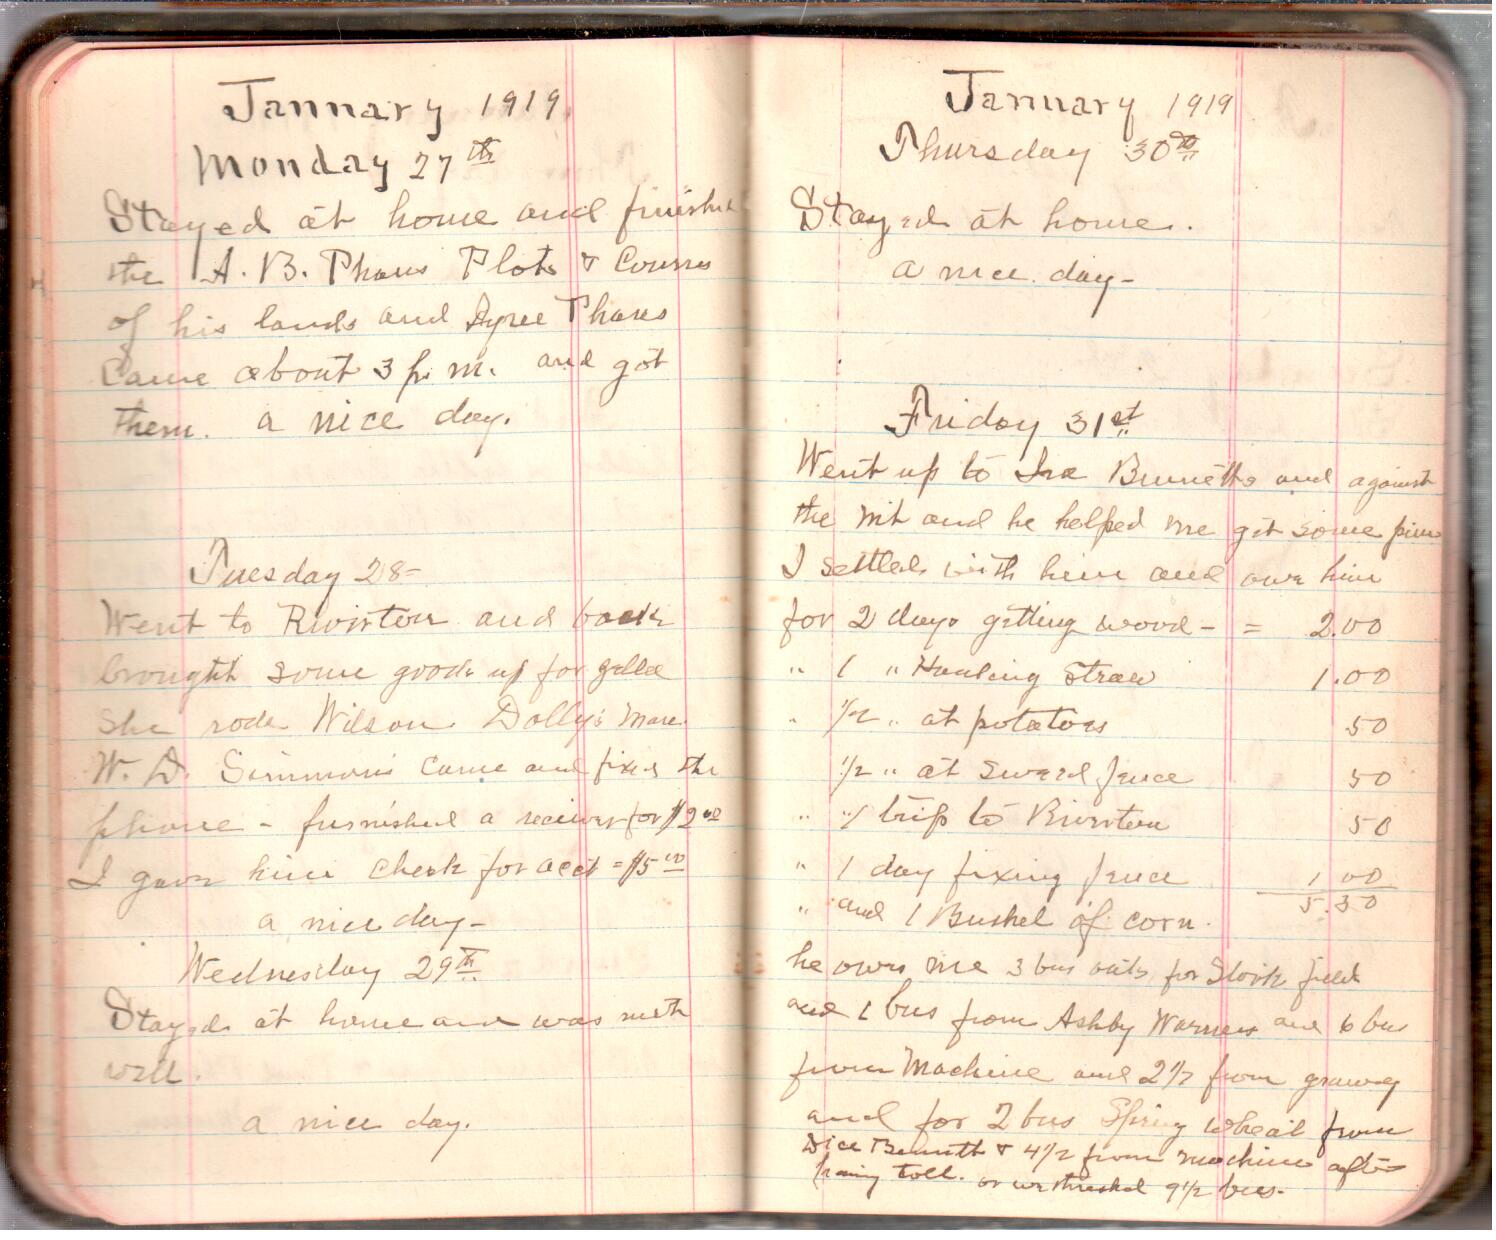 January 1919
Monday 27th
Stayed at home and finished
the A. B. Phares Plots & Courses
of his lands and Phares
Came about 3 p. m. and got
them. a nice day.
Tuesday 28-
Went to Riverton and back
brought some goods up for
She rode Wilson Dolly's mare.
W. D. Simmons came and fixed the
phone - furnished a receiver for $2 00
I gave him check for acct = $5 00
a nice day-
Wednesday 29th
Stayed at home and was not
well.
a nice day.
January 1919
Thursday 30th
Stayed at home.
a nice day-
Friday 31st
Went up to Ira Bennetts and against
the and he helped me get some
I settled with him and owe him
for 2 days getting wood - = 2.00
" 1 " Hauling Straw 1.00
" 1/2 " at potatoes 50
1/2 " at fence 50
" trip to Riverton 50
" 1 day fixing fence 1 00
5.50
" and 1 Bushel of corn.
he owes me 3 bus oats for field
and 1 bus from Ashby Warners and 6 bus
from Machine and 2 1/2 from granary
and for 2 bus Spring wheat from
Dice Bennett & 4 1/2 from machine after
toll. or we threshed 9 1/2 bus.